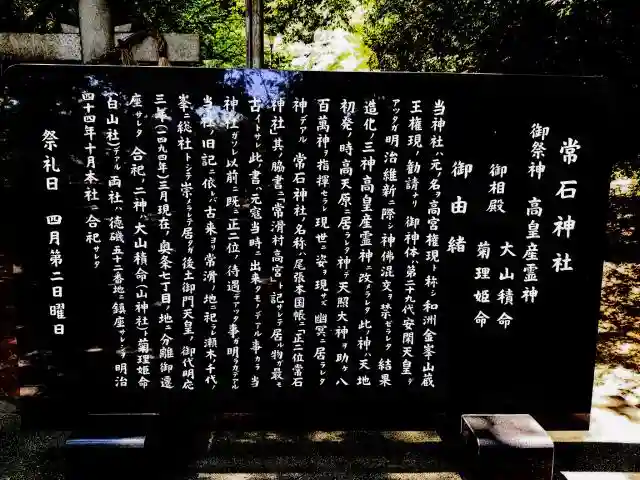 常石神社
御祭神 高皇産霊神
御相殿 大山積命
菊理姫命
御由緒
当神社ノ元ノ名ヲ高宮権現ト称シ和洲金峯山蔵
王権現ノ勧請ナリ 御神体ハ第二十九代安閑天皇デ
アツタガ明治維新ニ際シ神佛混交ヲ禁ゼラレタ 結果
造化ノ三神高皇産霊神ニ改メラレタ 此ノ神ハ天地
初発ノ時高天原ニ居ラレタ神デ天照大神ヲ助ケ八
百萬神ヲ指揮セラレ現世ニ姿ヲ現サズ幽冥ニ居ラレタ
神デアル 常石神社ノ名称ハ尾張本国帳ニ「正二位常石
神社」其ノ脇書ニ「常滑村高宮」ト記サレテ居ル物ガ最モ
古イトサレ此ノ書ハ元寇当時ニ出来タモノデアル事カラ当
神社ガソレ以前ニ既ニ正二位ノ待遇デアツタ事ガ明ラカデアル
当社旧記ニ依レバ古来ヨリ常滑ノ地ニ祀ラレ瀬木、千代ノ
峯ニ総社トシテ崇メラレテ居タガ後土御門天皇ノ御代明応
三年(一四九四年)三月現在ノ奥条七丁目ノ地ニ分離御遷
座サレタ 合祀ノ二神、大山積命(山神社)菊理姫命
(白山社)デアル 両社ハ徳磯五十二番地ニ鎮座サレシヲ 明治
四十四年十月本社ニ合祀サレタ
祭礼日 四月第二日曜日